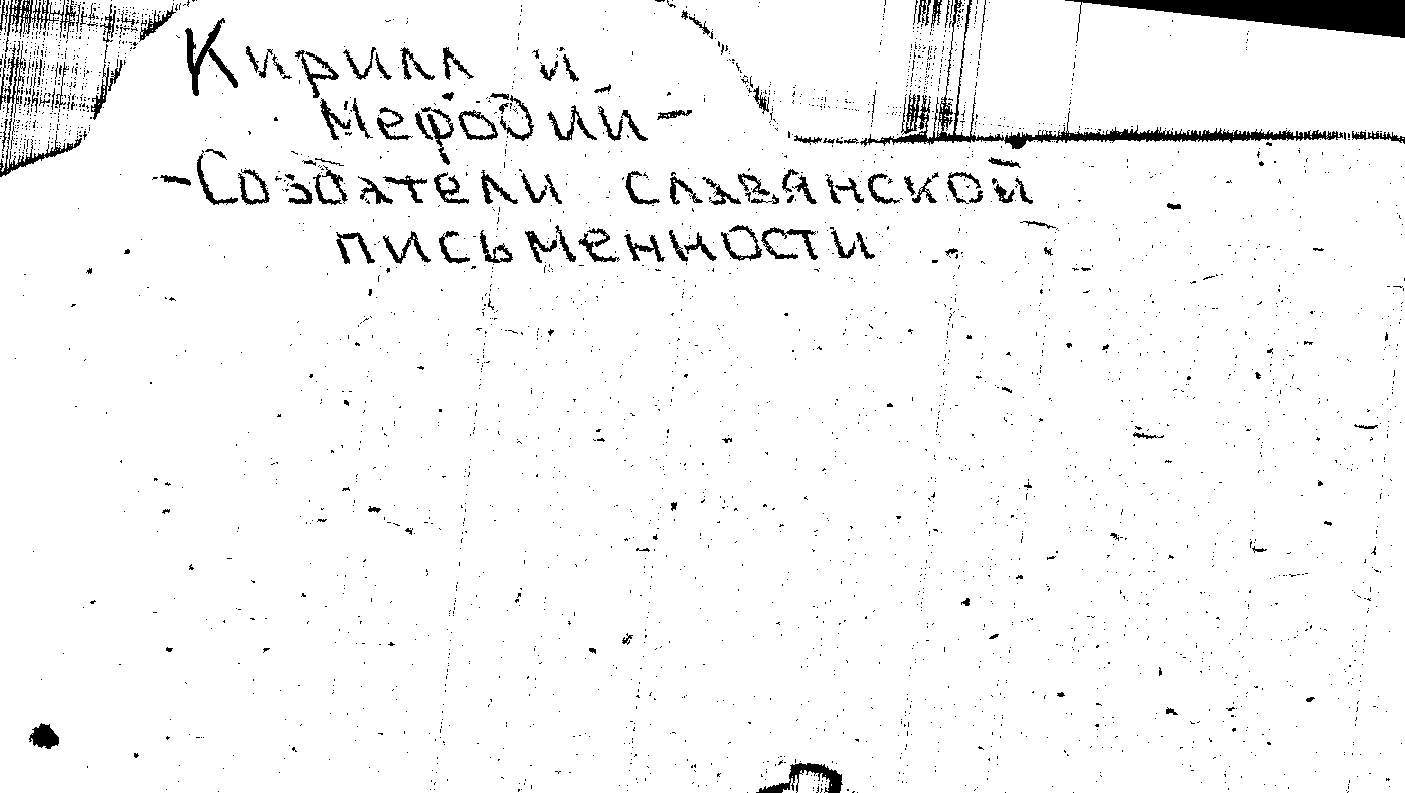 Кирилл и
Мефодий-
-Создатели славянской
письменности